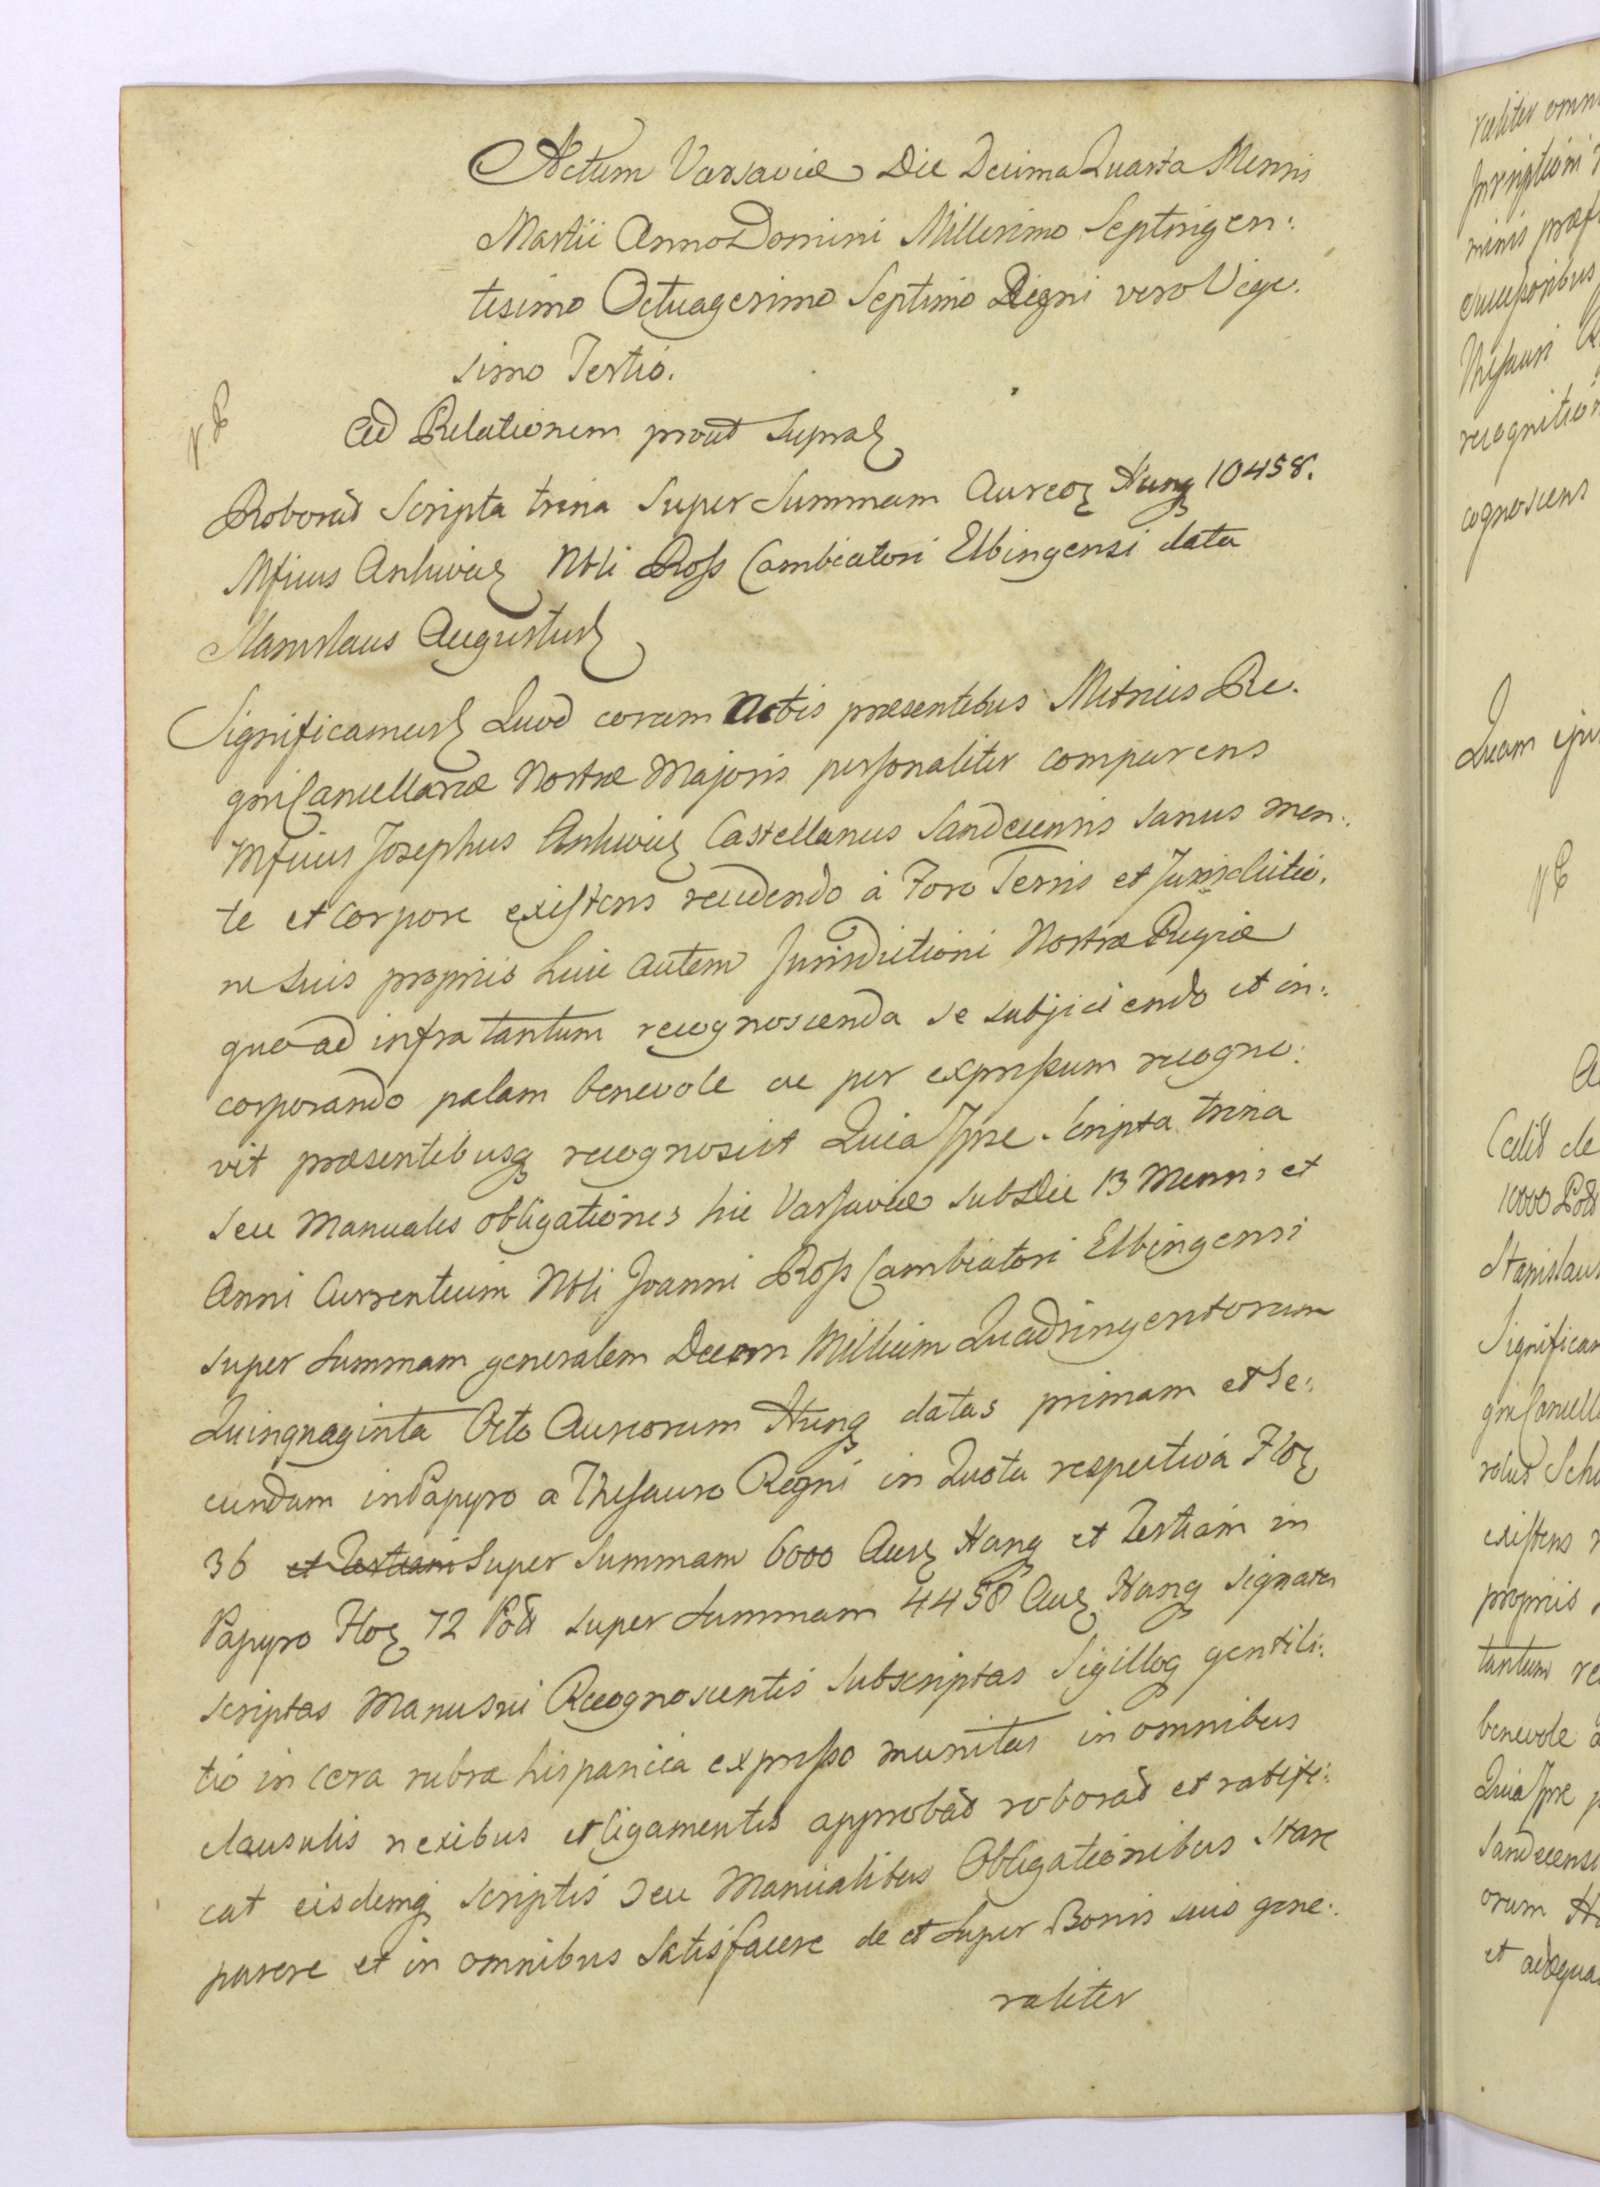 Actum Varsaviæ Die Decima Quarta Mensis
Martii Anno Domini Millesimo Septingen:
tesimo Octuagesimo Septimo Regni vero Vige:
simo Tertio.
Ad Relationem prout supra
Roborad Scripta trina Super Summam Aureoꝝ Hung 10458.
Mficus Ankwicz Nbli Ross Cambiatori Elbingensi data
Stanislaus Augustus
Significamus Quod coram Actis præsentibus Metrices Re:
gni Cancellariæ Nostræ Majoris personaliter comparens
Mficus Josephus Ankwicz Castellanus Sandecensis sanus men:
te et corpore existens recedendo à Foro Terris et Jurisdictio:
ne suis propriis huic autem Jurisdictioni Nostræ Regiæ
quo ad infra tantum recognoscenda se subjiciendo et in:
corporando palam benevole ac per expressum recogno:
vit præsentibusq recognoscit Quia Ipse Scripta trina
seu Manuales obligationes hic Varsaviæ sub Die 13 Mensis et
Anni Currentium Nbli Joanni Ross Cambiatori Elbingensi
super summam generalem Decem Millium Quadringentorum
Quinquaginta Octo Aureorum Hung datas primam et Se:
cundam in Papyro a Thesauro Regni in Quota respectiva Floꝝ
36 et Tertiam Super Summam 6000 Aurꝝ Hung et Tertiam in
Papyro Floꝝ 72 Pols super Summam 4458 Auꝝ Hung signata
scriptas Manu sui Recognoscentis subscriptas Sigilloq gentili:
tio in cera rubra hispanica expresso munitas in omnibus
clausulis nexibus et ligamentis approbad roborad et ratifi:
cat eisdemq scriptis seu Manualibus Obligationibus stare
parere et in omnibus Satisfacere de et super Bonis suis gene:
raliter
raliter omn
minis præf
Thesauri
recognition
cognoscens
Quam
10000
Stanislaus
Significam
existens
propriis
tantum re
benevole a
Quia Ipse p
Sandecensi
orum